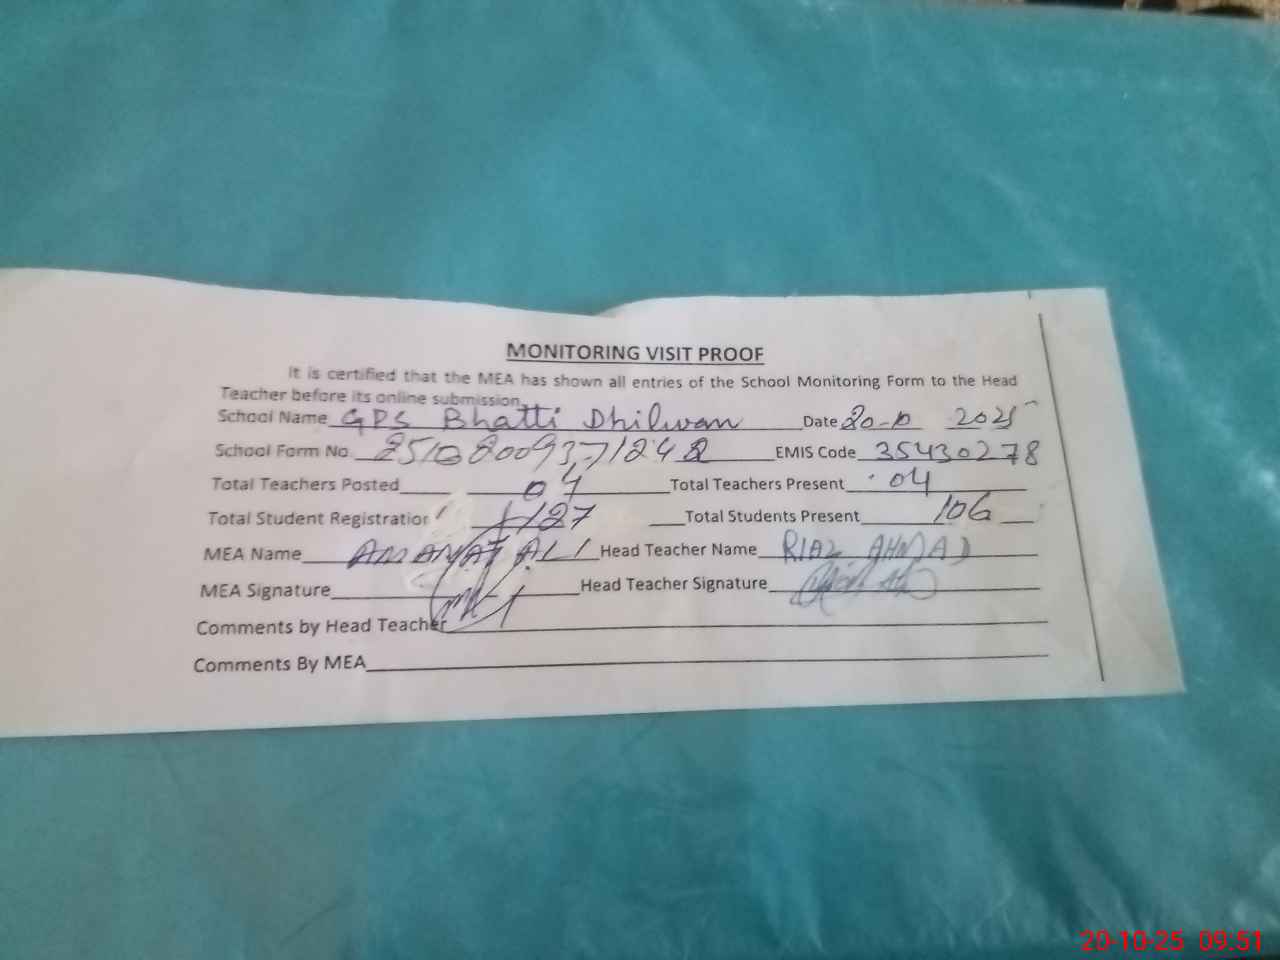 MONITORING VISIT PROOF
It is certified that the MEA has shown all entries of the School Monitoring Form to the Head
Teacher before its online submission.
School Name GPS Bhatti Dhilwan Date 20-10 2025
School Form No. EMIS Code 35430278
Total Teachers Posted 04 Total Teachers Present 04
Total Student Registration 127 Total Students Present 106
MEA Name AMANAT ALI Head Teacher Name RIAZ AHMAD
MEA Signature Head Teacher Signature
Comments by Head Teacher
Comments By MEA
20-10-25 09:51